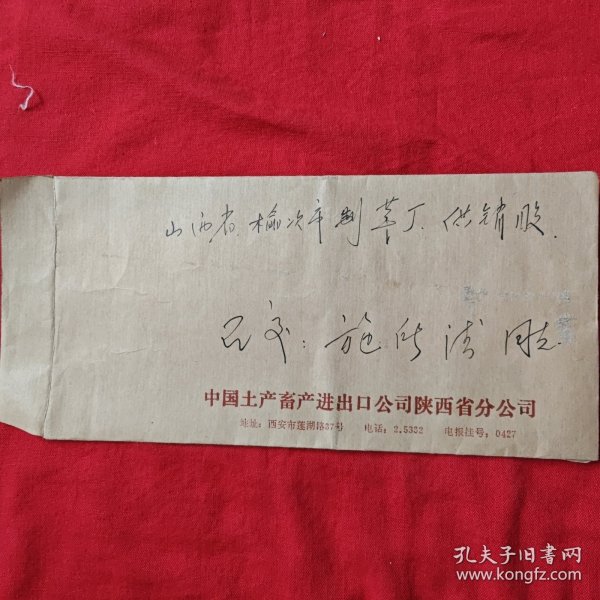 山西省.榆次市制革厂.供销股.
面交:施 涛 同志
中国土产畜产进出口公司陕西省分公司
地址:西安市莲湖路37号 电话:2.5332 电报挂号:0427
孔夫子旧书网
www.kongfz.com